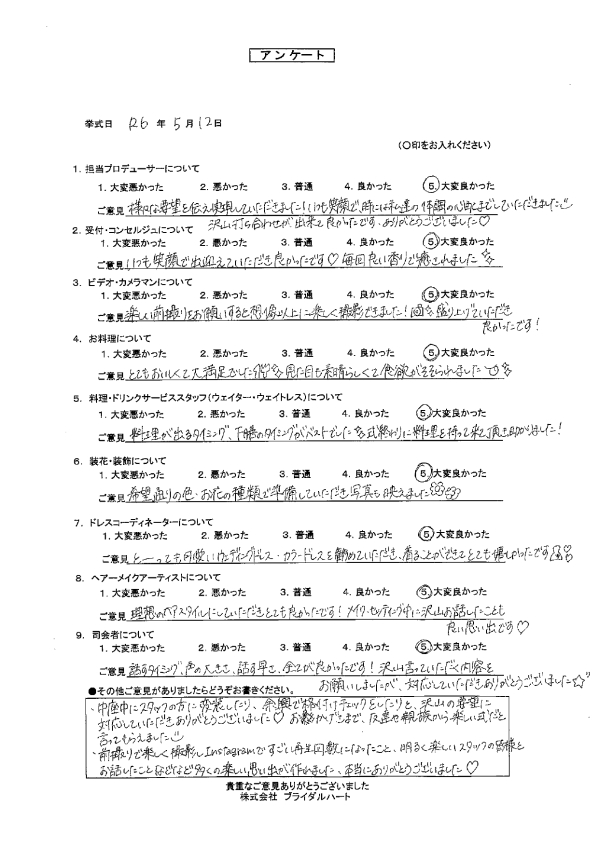 アンケート
挙式日 R6 年 5 月 12 日
(〇印をお入れください)
1. 担当プロデューサーについて
1. 大変悪かった 2. 悪かった 3. 普通 4. 良かった 5. 大変良かった
ご意見 様々な要望を伝え実現していただきました!いつも笑顔で、時には私達の体調の心配までしていただきました
沢山打ち合わせが出来て良かったです、ありがとうございました♡
2. 受付・コンセルジュについて
1. 大変悪かった 2. 悪かった 3. 普通 4. 良かった 5. 大変良かった
ご意見 いつも笑顔で出迎えていただき良かったです♡毎回良い香りで癒されました☆
3. ビデオ・カメラマンについて
1. 大変悪かった 2. 悪かった 3. 普通 4. 良かった 5. 大変良かった
ご意見 楽しい前撮りをお願いすると想像以上に楽しく撮影できました! 盛り上げていただき
良かったです!
4. お料理について
1. 大変悪かった 2. 悪かった 3. 普通 4. 良かった 5. 大変良かった
ご意見 とてもおいしくて大満足でした 見た目も素晴らしくて食欲がそそられました
5. 料理・ドリンクサービススタッフ(ウェイター・ウェイトレス)について
1. 大変悪かった 2. 悪かった 3. 普通 4. 良かった 5. 大変良かった
ご意見 料理が出るタイミング、下膳のタイミングがベストでした☆式終わりに料理を持って来て頂き助かりました!
6. 装花・装飾について
1. 大変悪かった 2. 悪かった 3. 普通 4. 良かった 5. 大変良かった
ご意見 希望通りの色・お花の種類で準備していただき写真も映えました
7. ドレスコーディネーターについて
1. 大変悪かった 2. 悪かった 3. 普通 4. 良かった 5. 大変良かった
ご意見 とーっても可愛いウェディングドレス・カラードレスを勧めていただき、着ることができてとても嬉しかったです
8. ヘアーメイクアーティストについて
1. 大変悪かった 2. 悪かった 3. 普通 4. 良かった 5. 大変良かった
ご意見 理想のヘアスタイルにしていただきとても良かったです!メイク・セッティング中に沢山お話したことも
良い思い出です♡
9. 司会者について
1. 大変悪かった 2. 悪かった 3. 普通 4. 良かった 5. 大変良かった
ご意見 話すタイミング、声の大きさ、話す早さ、全てが良かったです!沢山言っていただく内容を
お願いしましたが、対応していただきありがとうございました☆
●その他ご意見がありましたらどうぞお書きください。
・中座中にスタッフの方に変装したり、余興で格付けチェックをしたりと、沢山の要望に
対応していただきありがとうございました♡お陰かげさまで、友達や親族から楽しい式だと
言ってもらえました
・前撮りで楽しく撮影しInstagramですごい再生回数になったこと、明るく楽しいスタッフの皆様と
お話したことなどなど多くの楽しい思い出が作れました、本当にありがとうございました♡
貴重なご意見ありがとうございました
株式会社 ブライダルハート